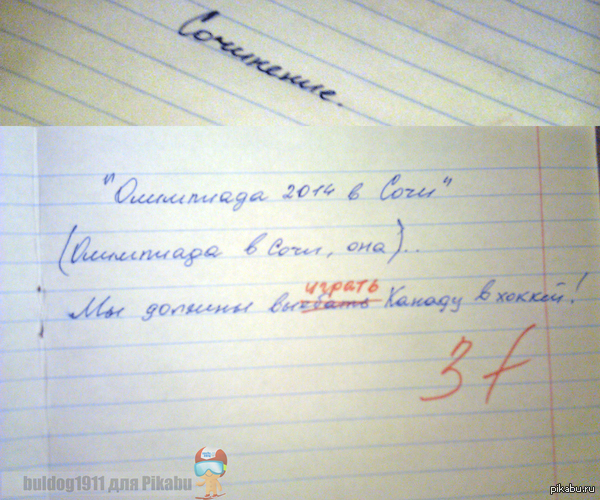 Сочинение.
"Олимпиада 2014 в Сочи"
(Олимпиада в Сочи, она)..
играть
Мы должны выебать Канаду в хоккей!
3+
buldog1911 для Pikabu
pikabu.ru